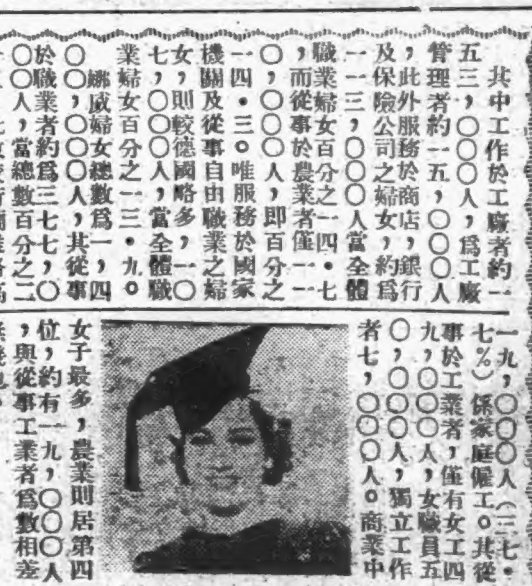 其中工作於工廠者約一
五三，〇〇〇人，爲工廠
管理者約一五，〇〇〇人
，此外服務於商店，銀行
及保險公司之婦女，約爲
一一三，〇〇〇人當全體
職業婦女百分之一四・七
，而從事於農業者僅一一
〇，〇〇〇人，即百分之
一四・三。唯服務於國家
機關及從事自由職業之婦
女，則較德國略多，一〇
七，〇〇〇人，當全體職
業婦女百分之一三・九。
娜威婦女總數爲一，四
〇〇，〇〇〇人，其從事
於職業者約爲三七七，〇
〇〇人，當總數百分之二
一九，〇〇〇人（三七・
七％）係家庭僱工。其從
事於工業者，僅有女工四
九，〇〇〇人，女職員五
〇，〇〇〇人，獨立工作
者七，〇〇〇人。商業中
女子最多，農業則居第四
位，約有一九，〇〇〇人
，與從事工業者爲數相差